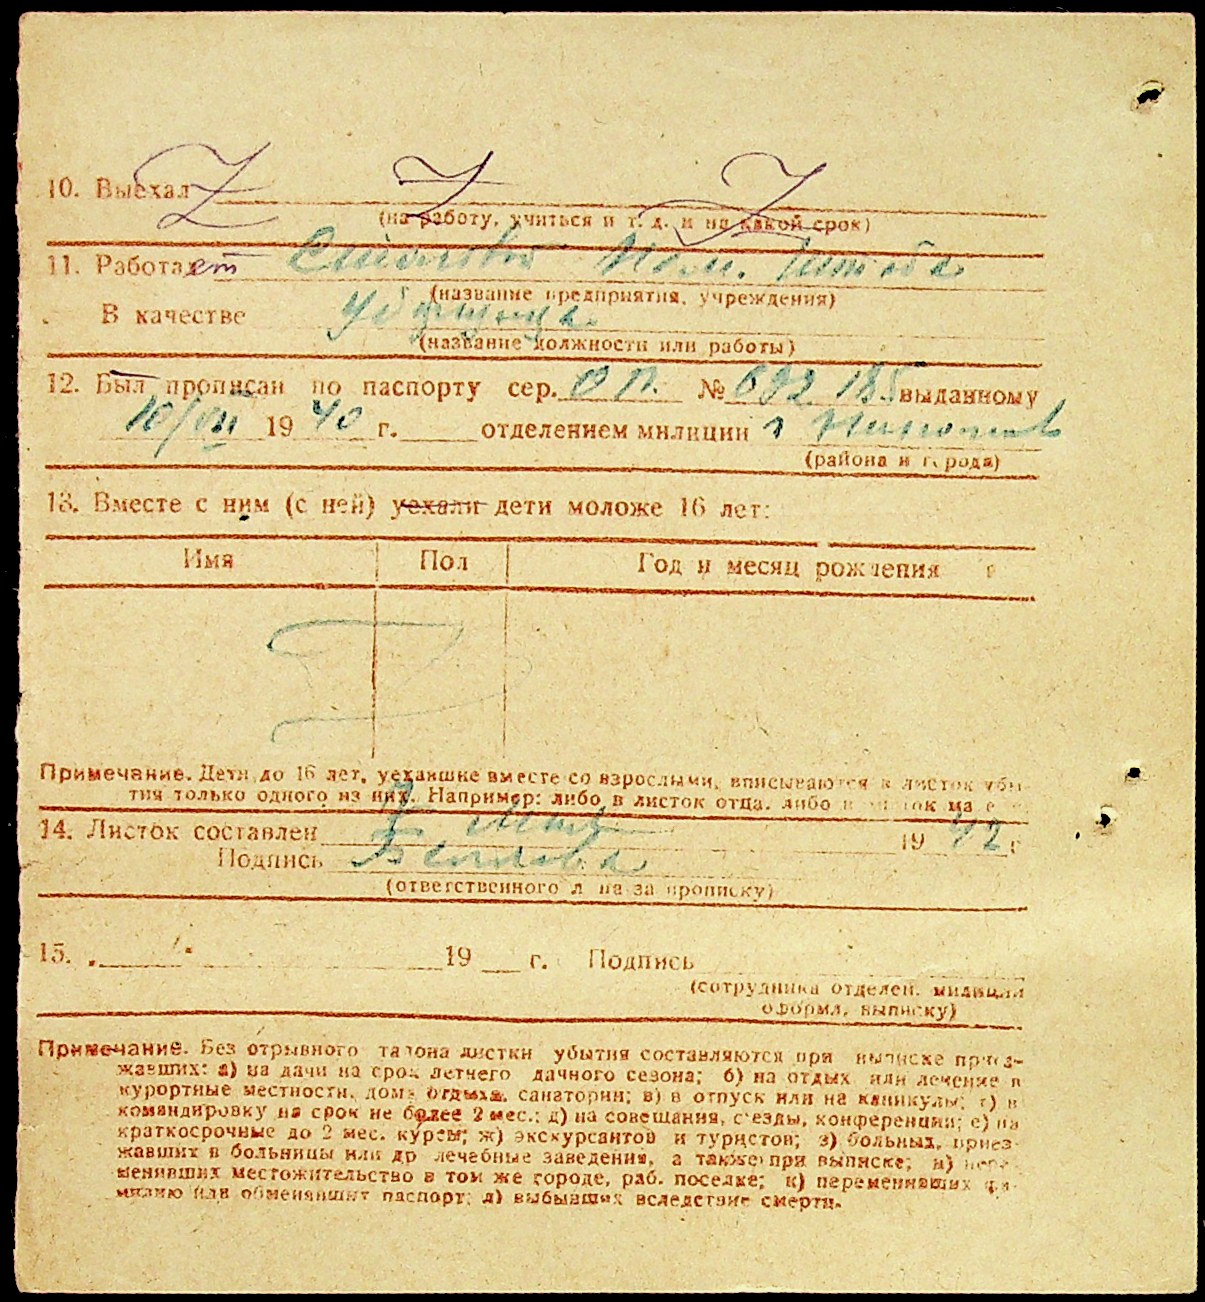 10. Выехал Z Z Z
(на работу, учиться и т. д. и на какой срок)
11. Работает
(название предприятия, учреждения)
В качестве уборщица
(название должности или работы)
12. Был прописан по паспорту сер. О П. № 692 185 выданному
10/VIII 19 40 г. отделением милиции г
(района и города)
13. Вместе с ним (с ней) уехали дети моложе 16 лет:
Имя Пол Год и месяц рождения
Z
Примечание. Дети до 16 лет, уехавшие вместе со взрослыми, вписываются в листок убы-
тия только одного из них. Например: либо в листок отца, либо в листок ма
14. Листок составлен 7 19 42 г
Подпись
(ответственного л на за прописку)
15. „ “ 19 г. Подпись
(сотрудника отделен. милиции
оформл. выписку)
Примечание. Без отрывного талона листки убытия составляются при выписке приез-
жавших: а) на дачи на срок летнего дачного сезона; б) на отдых или лечение в
курортные местности, дома отдыха, санатории; в) в отпуск или на каникулы; г) в
командировку на срок не более 2 мес.; д) на совещания, с'езды, конференции; е) на
краткосрочные до 2 мес. курсы; ж) экскурсантов и туристов; з) больных, приез-
жавших в больницы или др лечебные заведения, а также при выписке; и) пере-
менивших местожительство в том же городе, раб. поселке; к) переменивших фа-
милию или обменявших паспорт; л) выбывших вследствие смерти.